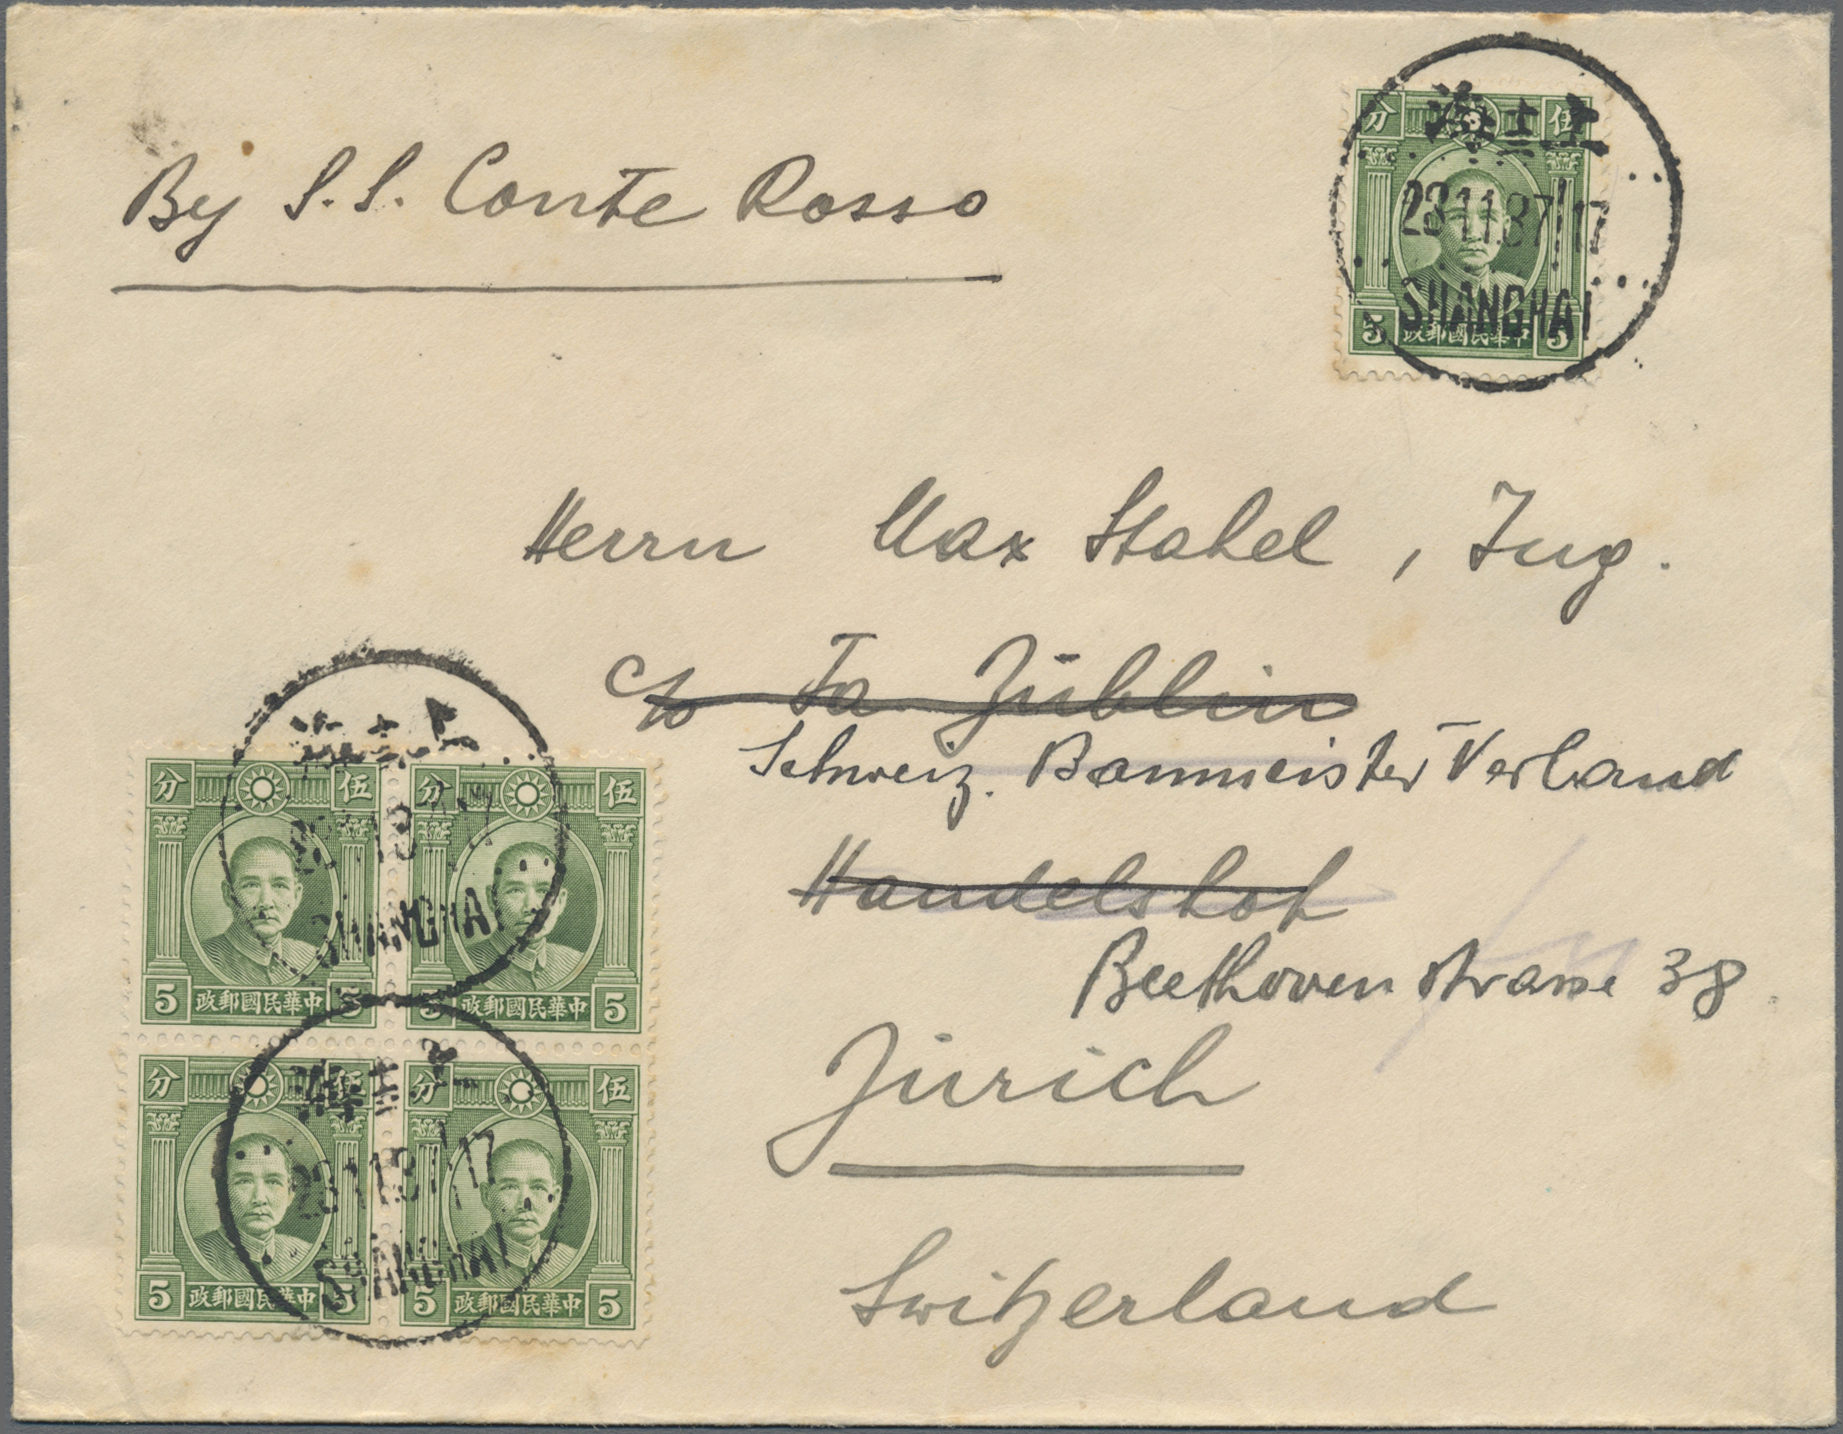 By S.S. Conte Rosso
分 伍
上海
23.11.37 17
SHANGHAI
5 政郵國民華中 5
Herrn Max Stahel, Ing.
c/o Fa. Züblin
Schweiz. Baumeister Verband
Handelshof
Beethovenstrasse 38
Zürich
Switzerland
上海
分 伍 分 伍
SHANGHAI
5 政郵國民華中 5 5 政郵國民華中 5
上海
分 伍 分 伍
23.11.37 17
SHANGHAI
5 政郵國民華中 5 5 政郵國民華中 5